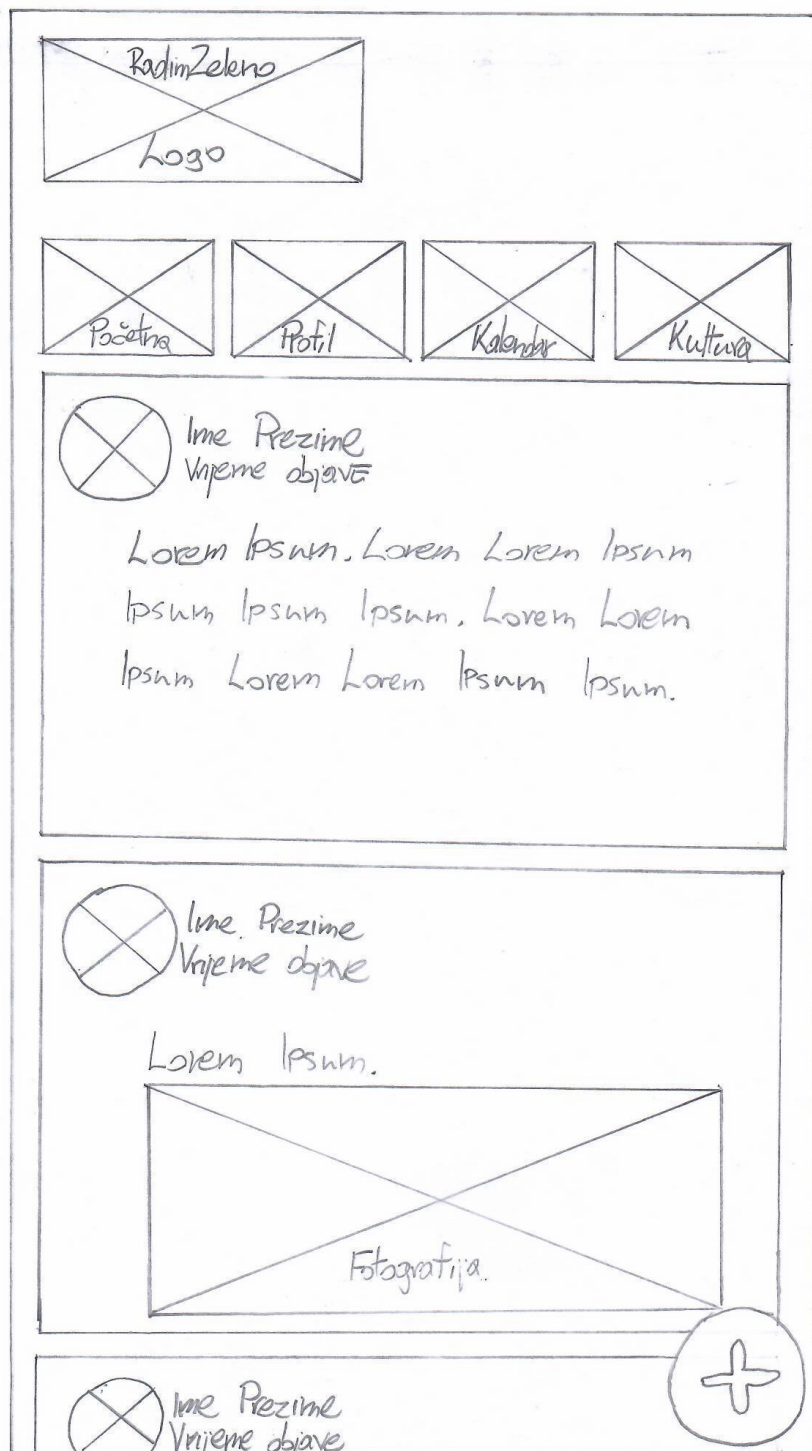 RadimZeleno
Logo
Početna
Profil
Kalendar
Kultura
Ime Prezime
Vrijeme objave
Lorem Ipsum. Lorem Lorem Ipsum
Ipsum Ipsum Ipsum. Lorem Lorem
Ipsum Lorem Lorem Ipsum Ipsum.
Ime Prezime
Vrijeme objave
Lorem Ipsum.
Fotografija
Ime Prezime
Vrijeme objave